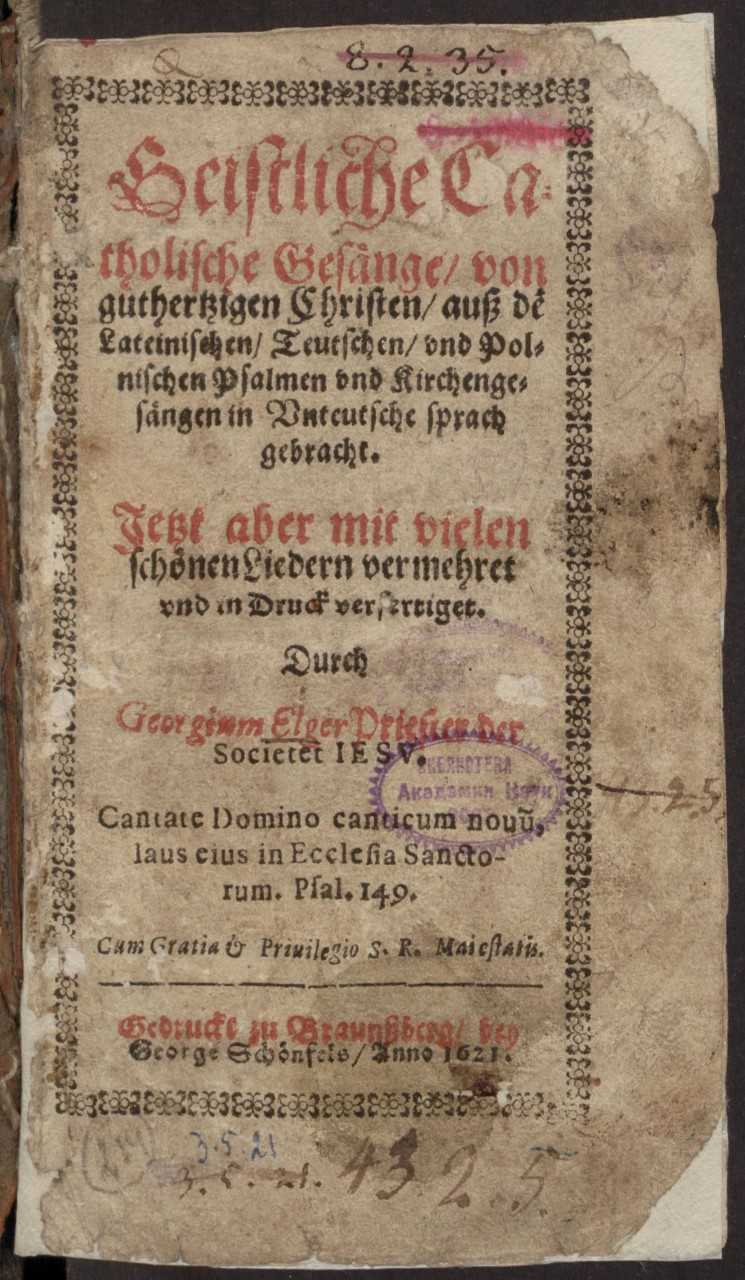 8. 2. 35.
Geistliche Ca-
tholische Gesänge/ von
guthertzigen Christen/ auß dē
Lateinischen/ Teutschen/ vnd Pol-
nischen Psalmen vnd Kirchenge-
sängen in Vnteutsche sprach
gebracht.
Jetzt aber mit vielen
schönen Liedern vermehret
vnd in Druck verfertiget.
Durch
Georgium Elger Priester der
Societet IESV.
БИБЛІОТЕКА
Академии Наук
Cantate Domino canticum nouũ,
laus eius in Ecclesia Sancto-
rum. Psal. 149.
Cum Gratia & Priuilegio S. R. Maiestatis.
Gedruckt zu Braunßberg/ bey
George Schönfels/ Anno 1621.
3.5.21
3. 5. 21. 43 2. 5.